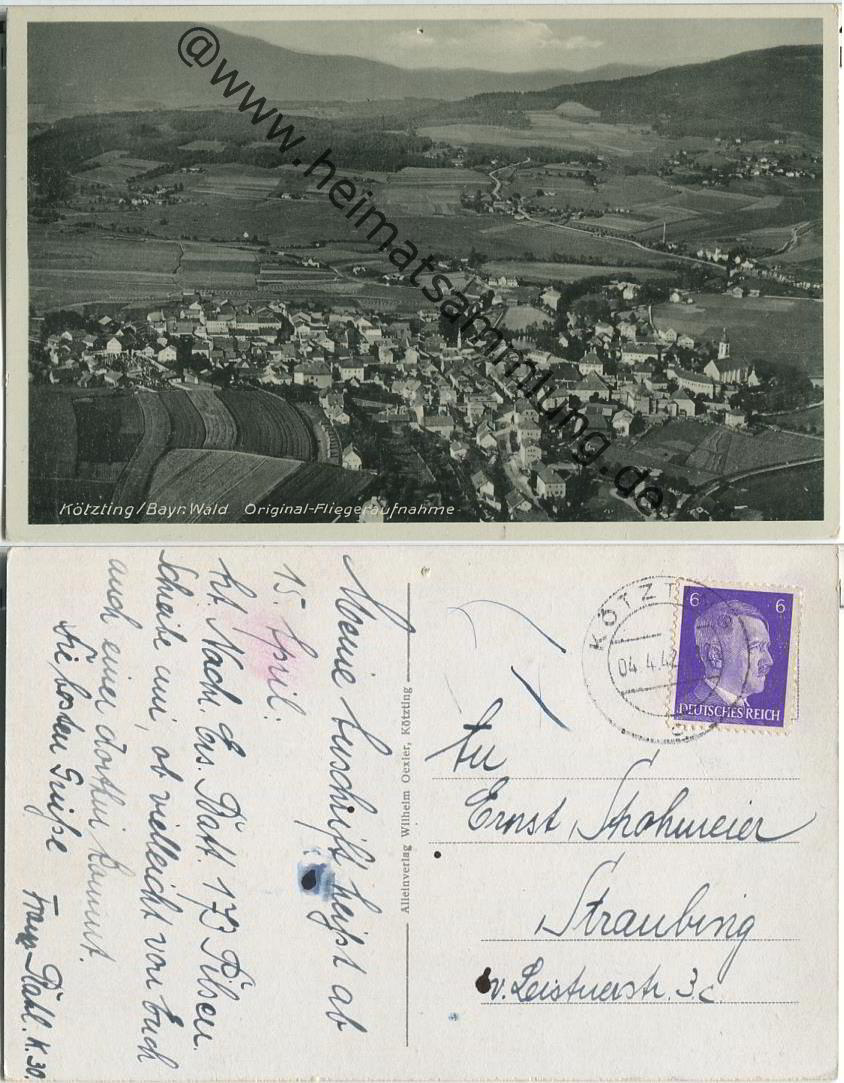 @www.heimatsammlung.de
Kötzting/Bayr. Wald Original-Fliegeraufnahme
Meine Anschrift heißt ab
15. April:
Nach. Ers. Batt. 173 Pilsen.
Schreibe mir, ob vielleicht von Euch
auch einer dorthin kommt.
Die besten Grüße
Franz
K. 30.
Alleinverlag Wilhelm Oexler, Kötzting
KÖTZT
04.4.42
6 6
DEUTSCHES REICH
An
Ernst Spohmeier
Straubing
v. Leistnerstr. 3c